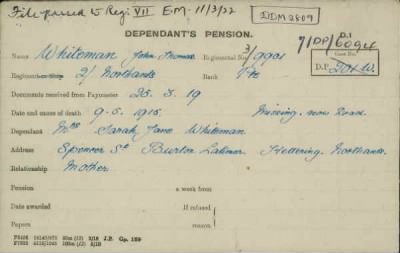 File passed to Reg. VII E.M. 11/3/22
DDM 2809
DEPENDANT'S PENSION. D.1
7/DP/6094
Name Whiteman John Thomas Regimental No. 3/9901
Case No.
Regiment or Ship 2/ Northants Rank Pte
D.P.
Documents received from Paymaster 25.3.19
Date and cause of death 9-5-1915 Missing. now Dead.
Dependant Mrs Sarah Jane Whiteman
Address Spencer St Burton Latimer Kettering Northants.
Relationship Mother
Pension a week from
Date awarded If refused
Papers reason
J.P. Gp. 159